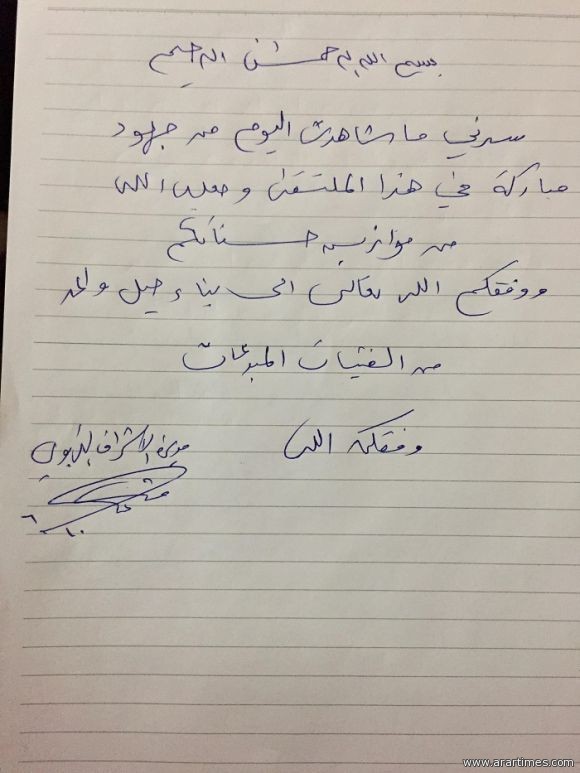 بسم الله الرحمن الرحيم
سرني ما شاهدت اليوم من جهود
مباركة في هذا الملتقى وجعلها الله
من موازين حسناتكم
ووفقكم الله تعالى الى بناء جيل واعد
من الفتيات المبدعات
وفقكم الله
مديرة الاشراف التربوي
www.arartimes.com